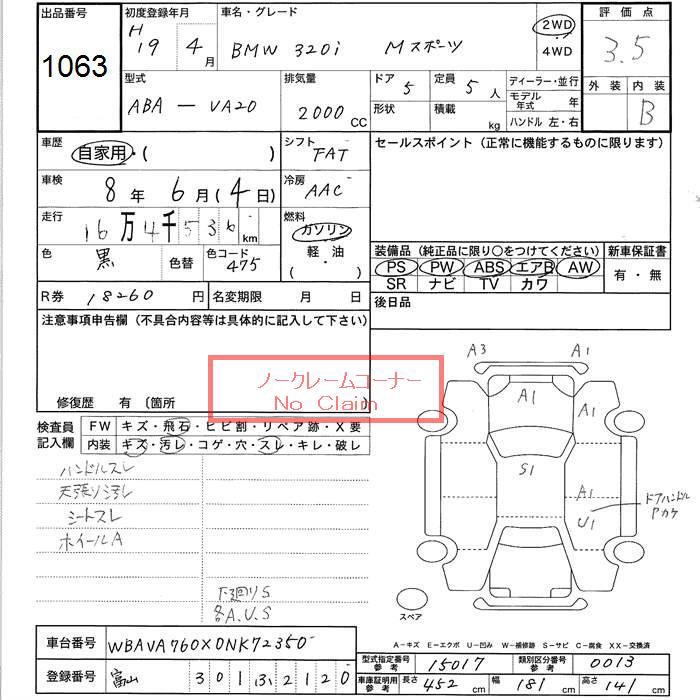 出品番号 初度登録年月 車名・グレード 評価点
1063 H 19 4月 BMW 320i Mスポーツ 2WD 4WD 3.5
型式 排気量 ドア 5 定員 5人 ディーラー・並行 外装 内装
ABA-VA20 2000CC 形状 積載 kg モデル年式 年 B
ハンドル 左・右
車歴 自家用・( ) シフト FAT セールスポイント(正常に機能するものに限ります)
車検 8年 6月(4日) 冷房 AAC
走行 16万4千536km 燃料 ガソリン
軽・油
( ・ )
色 黒 色替 色コード 475 装備品(純正品に限り○をつけてください) 新車保証書
PS PW ABS エアB AW 有・無
SR ナビ TV カワ
R券 18260円 名変期限 月 日 後日品
注意事項申告欄(不具合内容等は具体的に記入して下さい)
ノークレームコーナー
No Claim
修復歴 有 〔箇所
検査員記入欄 FW キズ・飛石・ヒビ割・リペア跡・X要
内装 キズ・汚レ・コゲ・穴・スレ・キレ・破レ
ハンドルスレ
天張リ汚レ
シートスレ
ホイールA
下廻りS
各A.U.S
A3 A1
A1
S1
A1
U1
ドアハンドル
Pカケ
スペア
車台番号 WBAVA760X0NK72350
登録番号 富山 301 2120
A-キズ E-エクボ U-凹み W-補修跡 S-サビ C-腐食 XX-交換済
型式指定番号参考 15017 類別区分番号参考 0013
車庫証明用参考 長さ 452cm 幅 181cm 高さ 141cm